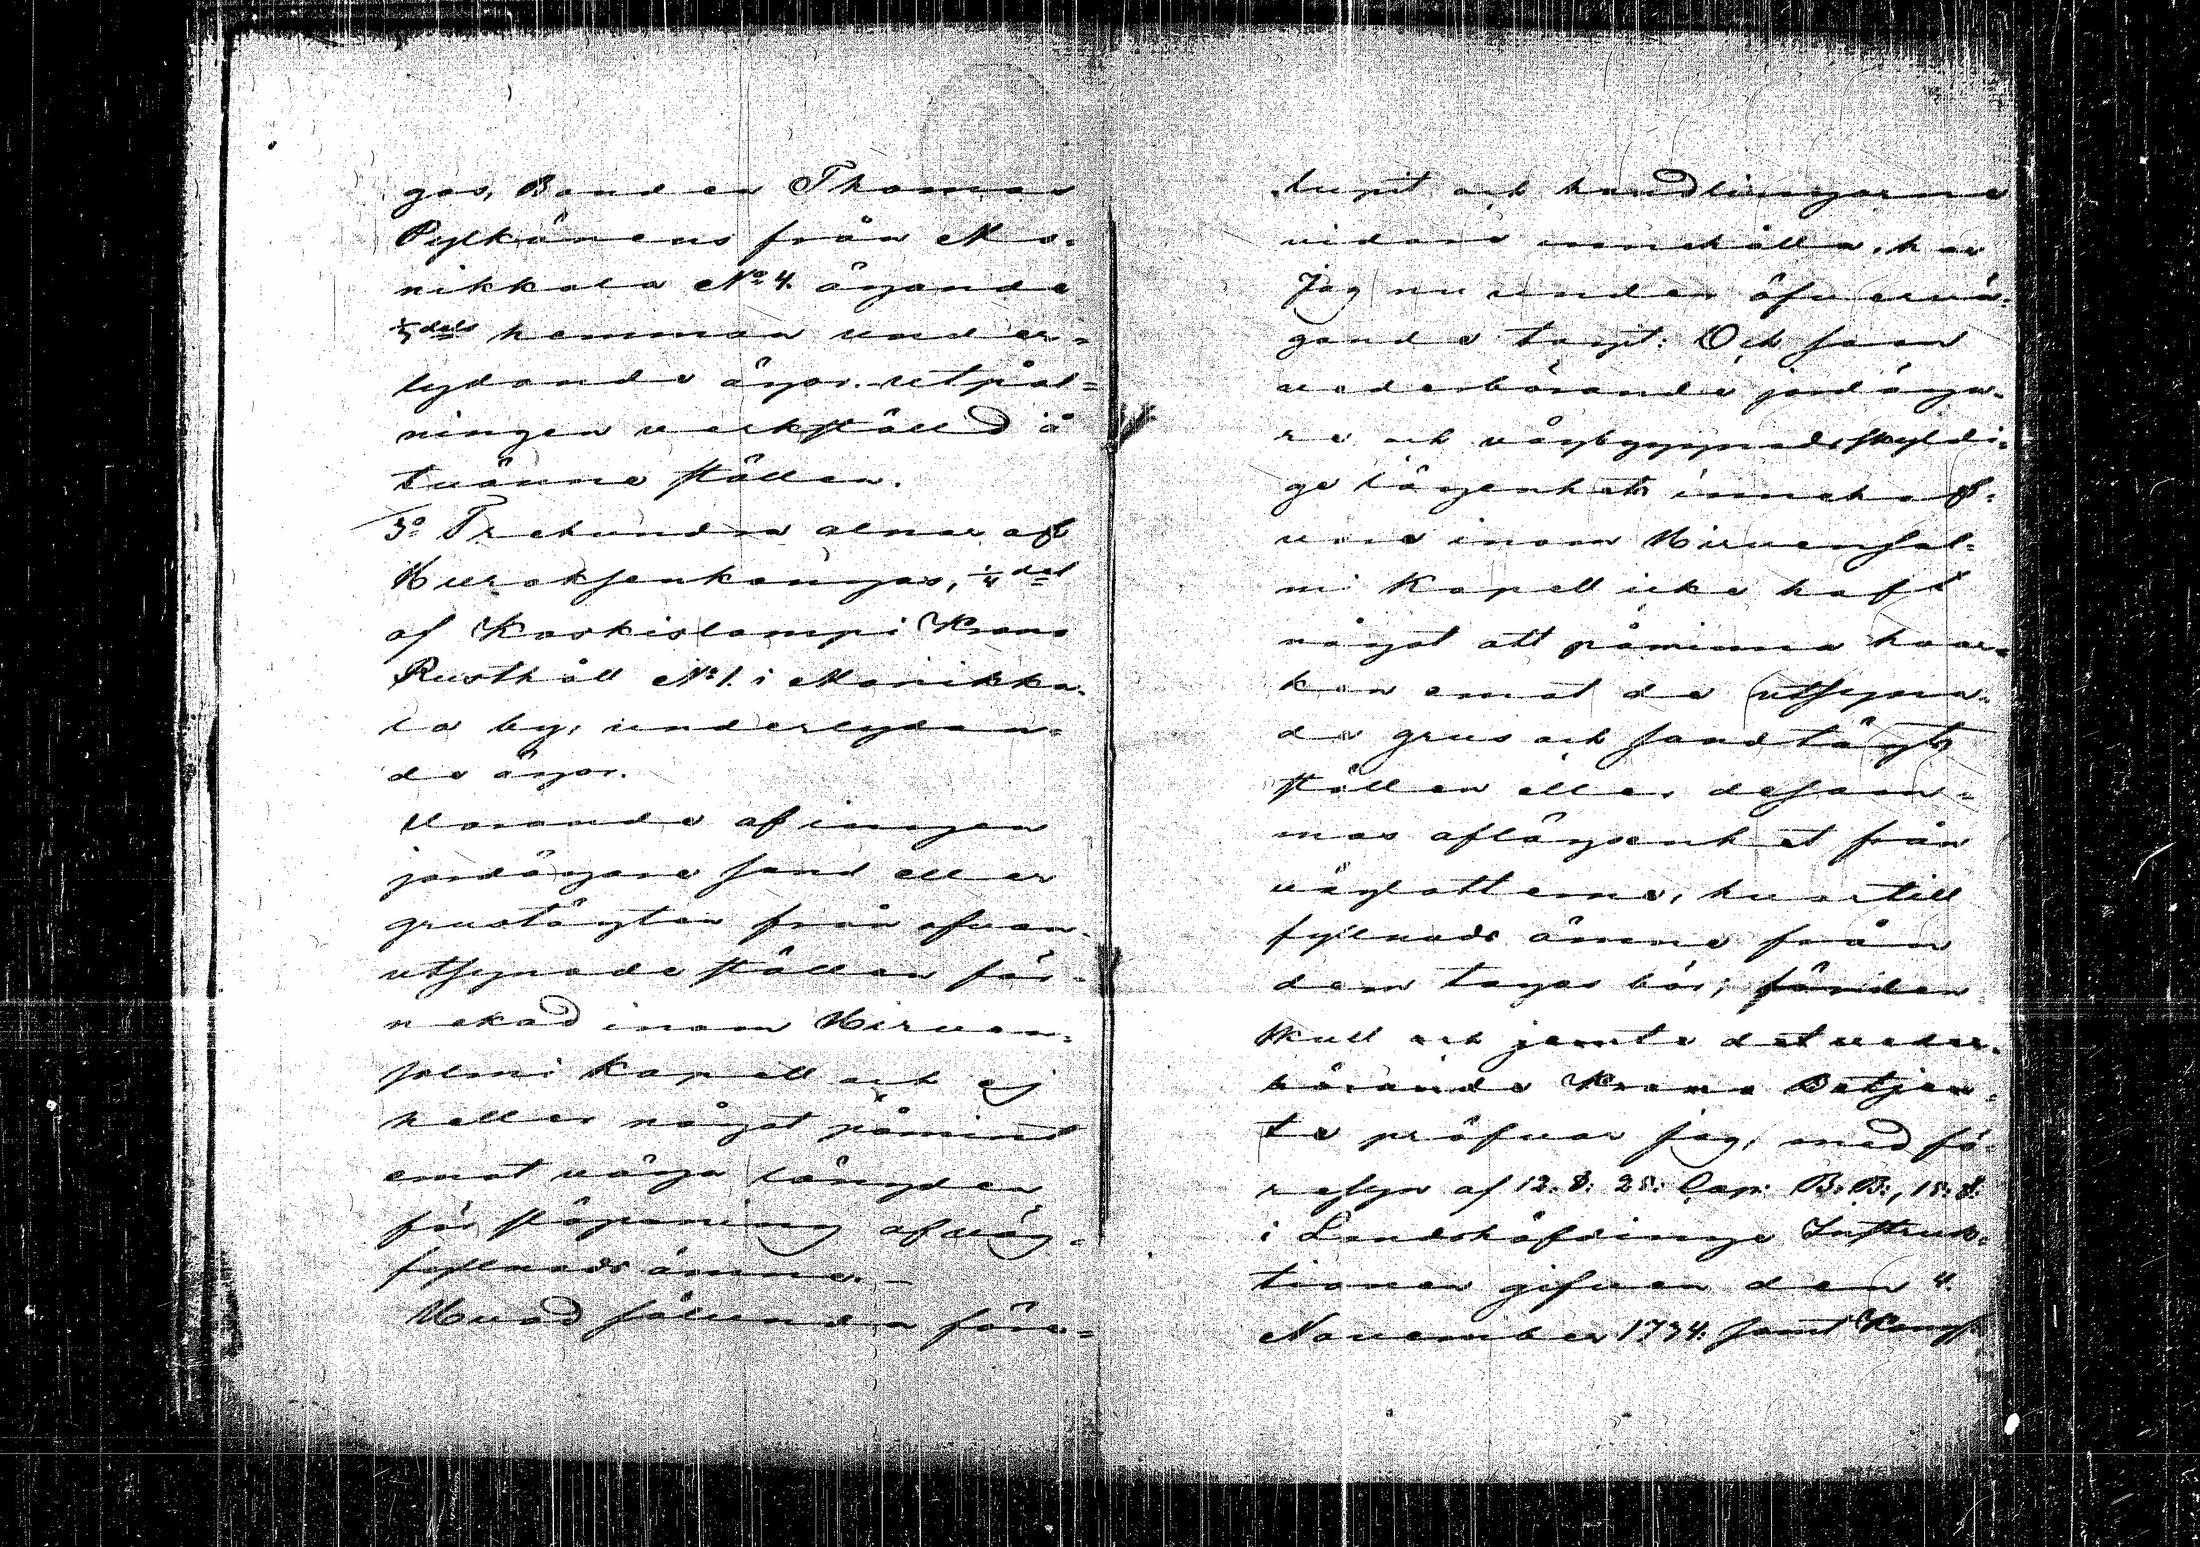 gas, Bonden Thomas
Pylkänens från Mo-
nikkala No 4. ägande
dels hemman under-
lydande ägor. utpål-
ningen verkställd å
tvänne ställen.
3o Trehundra alnar af
Huroksenkangas, 1/4 del
af Koskislampi Krono
Rusthåll No 1. i Monikka-
la by, underlydan-
de ägor.
Varande af ingen
jordägare sand eller
grustägten från ofvan-
utsynade ställen för-
nekad inom Hirven-
salmi Kapell och ej
heller något påmint
emot väga längden
för släpning af väg-
fyllnads ämne. —
Hvad sålunda före-
lupit och handlingarne
vidare innehålla, har
Jag nu under öfvervä-
gande tagit: Och som
vederbörande jordäga-
re och vägbyggnadsskyldi-
ge lägenhets innehaf-
vare inom Hirvensal-
mi Kapell icke haft
något att påminna hvar-
ken emot de utsyna-
de grus och sandtägts
ställen eller desam-
mas aflägsenhet från
väglotterne, hvartill
fyllnads ämne från
dem tagas bör; förden-
skull och jemte det veder-
börande Krono Betjen-
te pröfvar jag, med fö-
resyn af 12. §. 25. Cap. B. B., 15. §.
i Landshöfdinge Instruk-
tionen gifven den 4.
November 1734. samt Kongl.